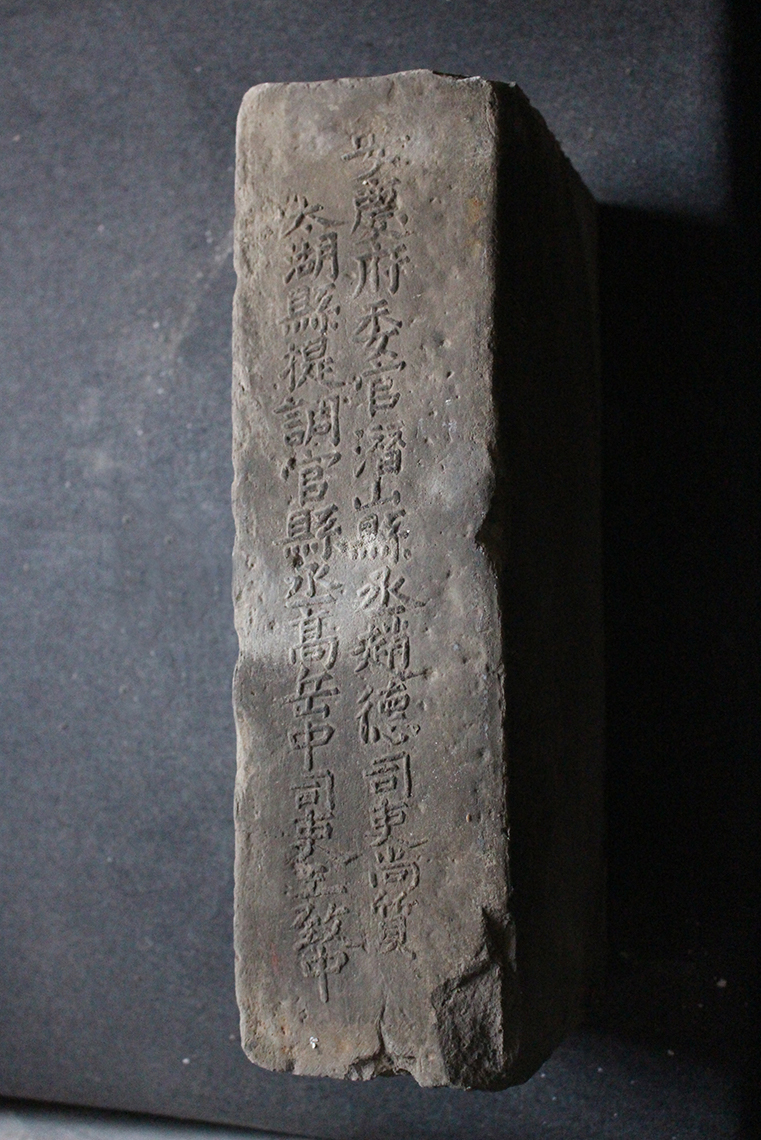 安慶府委官潛山縣丞德司吏尚質
太湖縣提調官縣丞高岳中司吏王致中